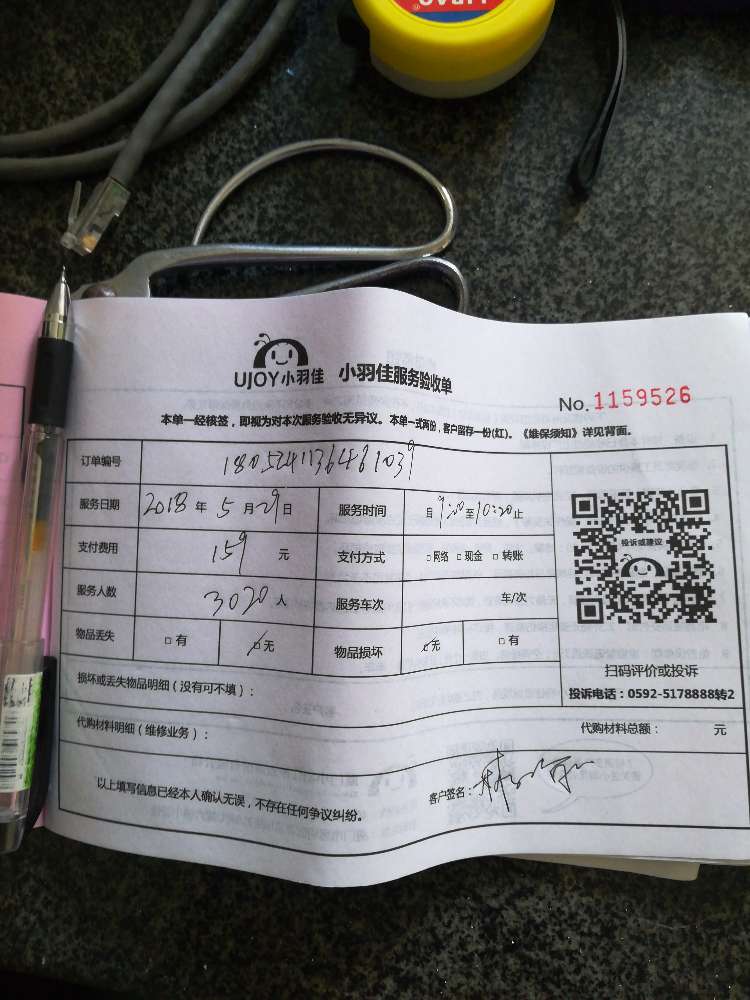 UJOY小羽佳 小羽佳服务验收单
No. 1159526
本单一经核签，即视为对本次服务验收无异议。本单一式两份，客户留存一份(红)。《维保须知》详见背面。
订单编号
服务日期 2018 年 5 月 29 日 服务时间 自 9:20 至 10:20 止
支付费用 159 元 支付方式 □网络 □现金 □转账
服务人数 3020 人 服务车次 车/次
物品丢失 □有 □无 物品损坏 □无 □有
损坏或丢失物品明细（没有可不填）：
代购材料明细（维修业务）： 代购材料总额： 元
以上填写信息已经本人确认无误，不存在任何争议纠纷。 客户签名：
投诉或建议
扫码评价或投诉
投诉电话：0592-5178888转2